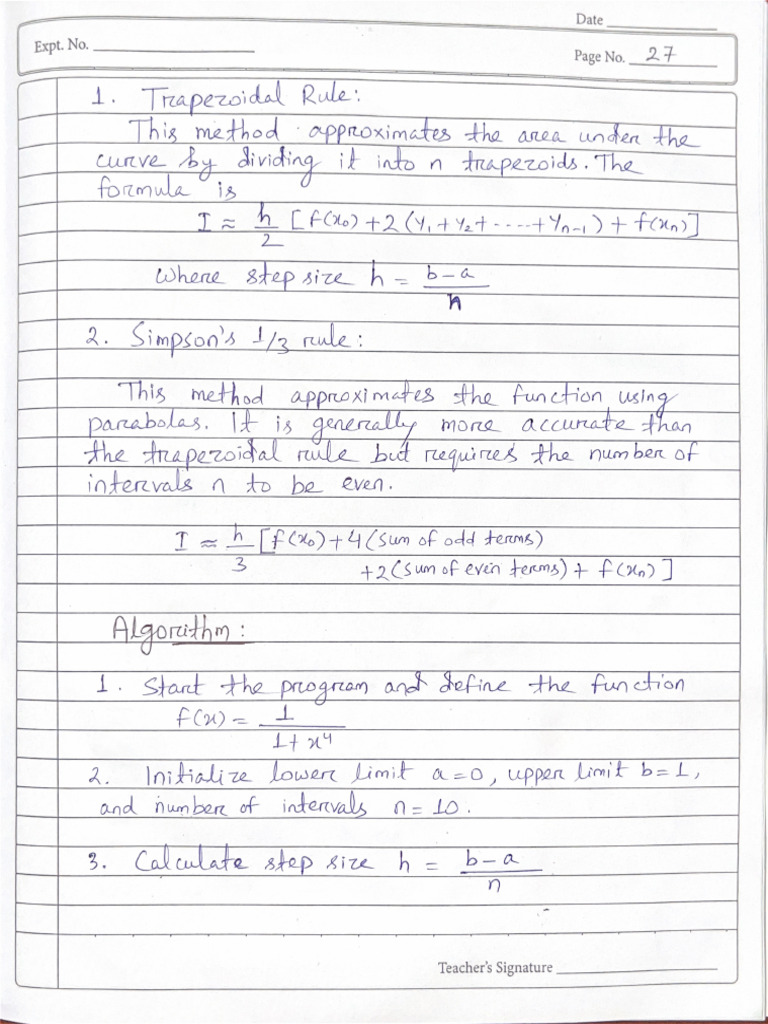 Date
Expt. No.
Page No. 27
1. Trapezoidal Rule:
This method approximates the area under the
curve by dividing it into n trapezoids. The
formula is
I ≈ h/2 [f(x₀) + 2 (y₁ + y₂ + ---- + yₙ₋₁) + f(xₙ)]
Where step size h = b-a/n
2. Simpson's 1/3 rule:
This method approximates the function using
parabolas. It is generally more accurate than
the trapezoidal rule but requires the number of
intervals n to be even.
I ≈ h/3 [f(x₀) + 4 (sum of odd terms)
+2 (sum of even terms) + f(xₙ)]
Algorithm:
1. Start the program and define the function
f(x) = 1/1+x⁴
2. Initialize lower limit a=0, upper limit b=1,
and number of intervals n=10.
3. Calculate step size h = b-a/n
Teacher's Signature